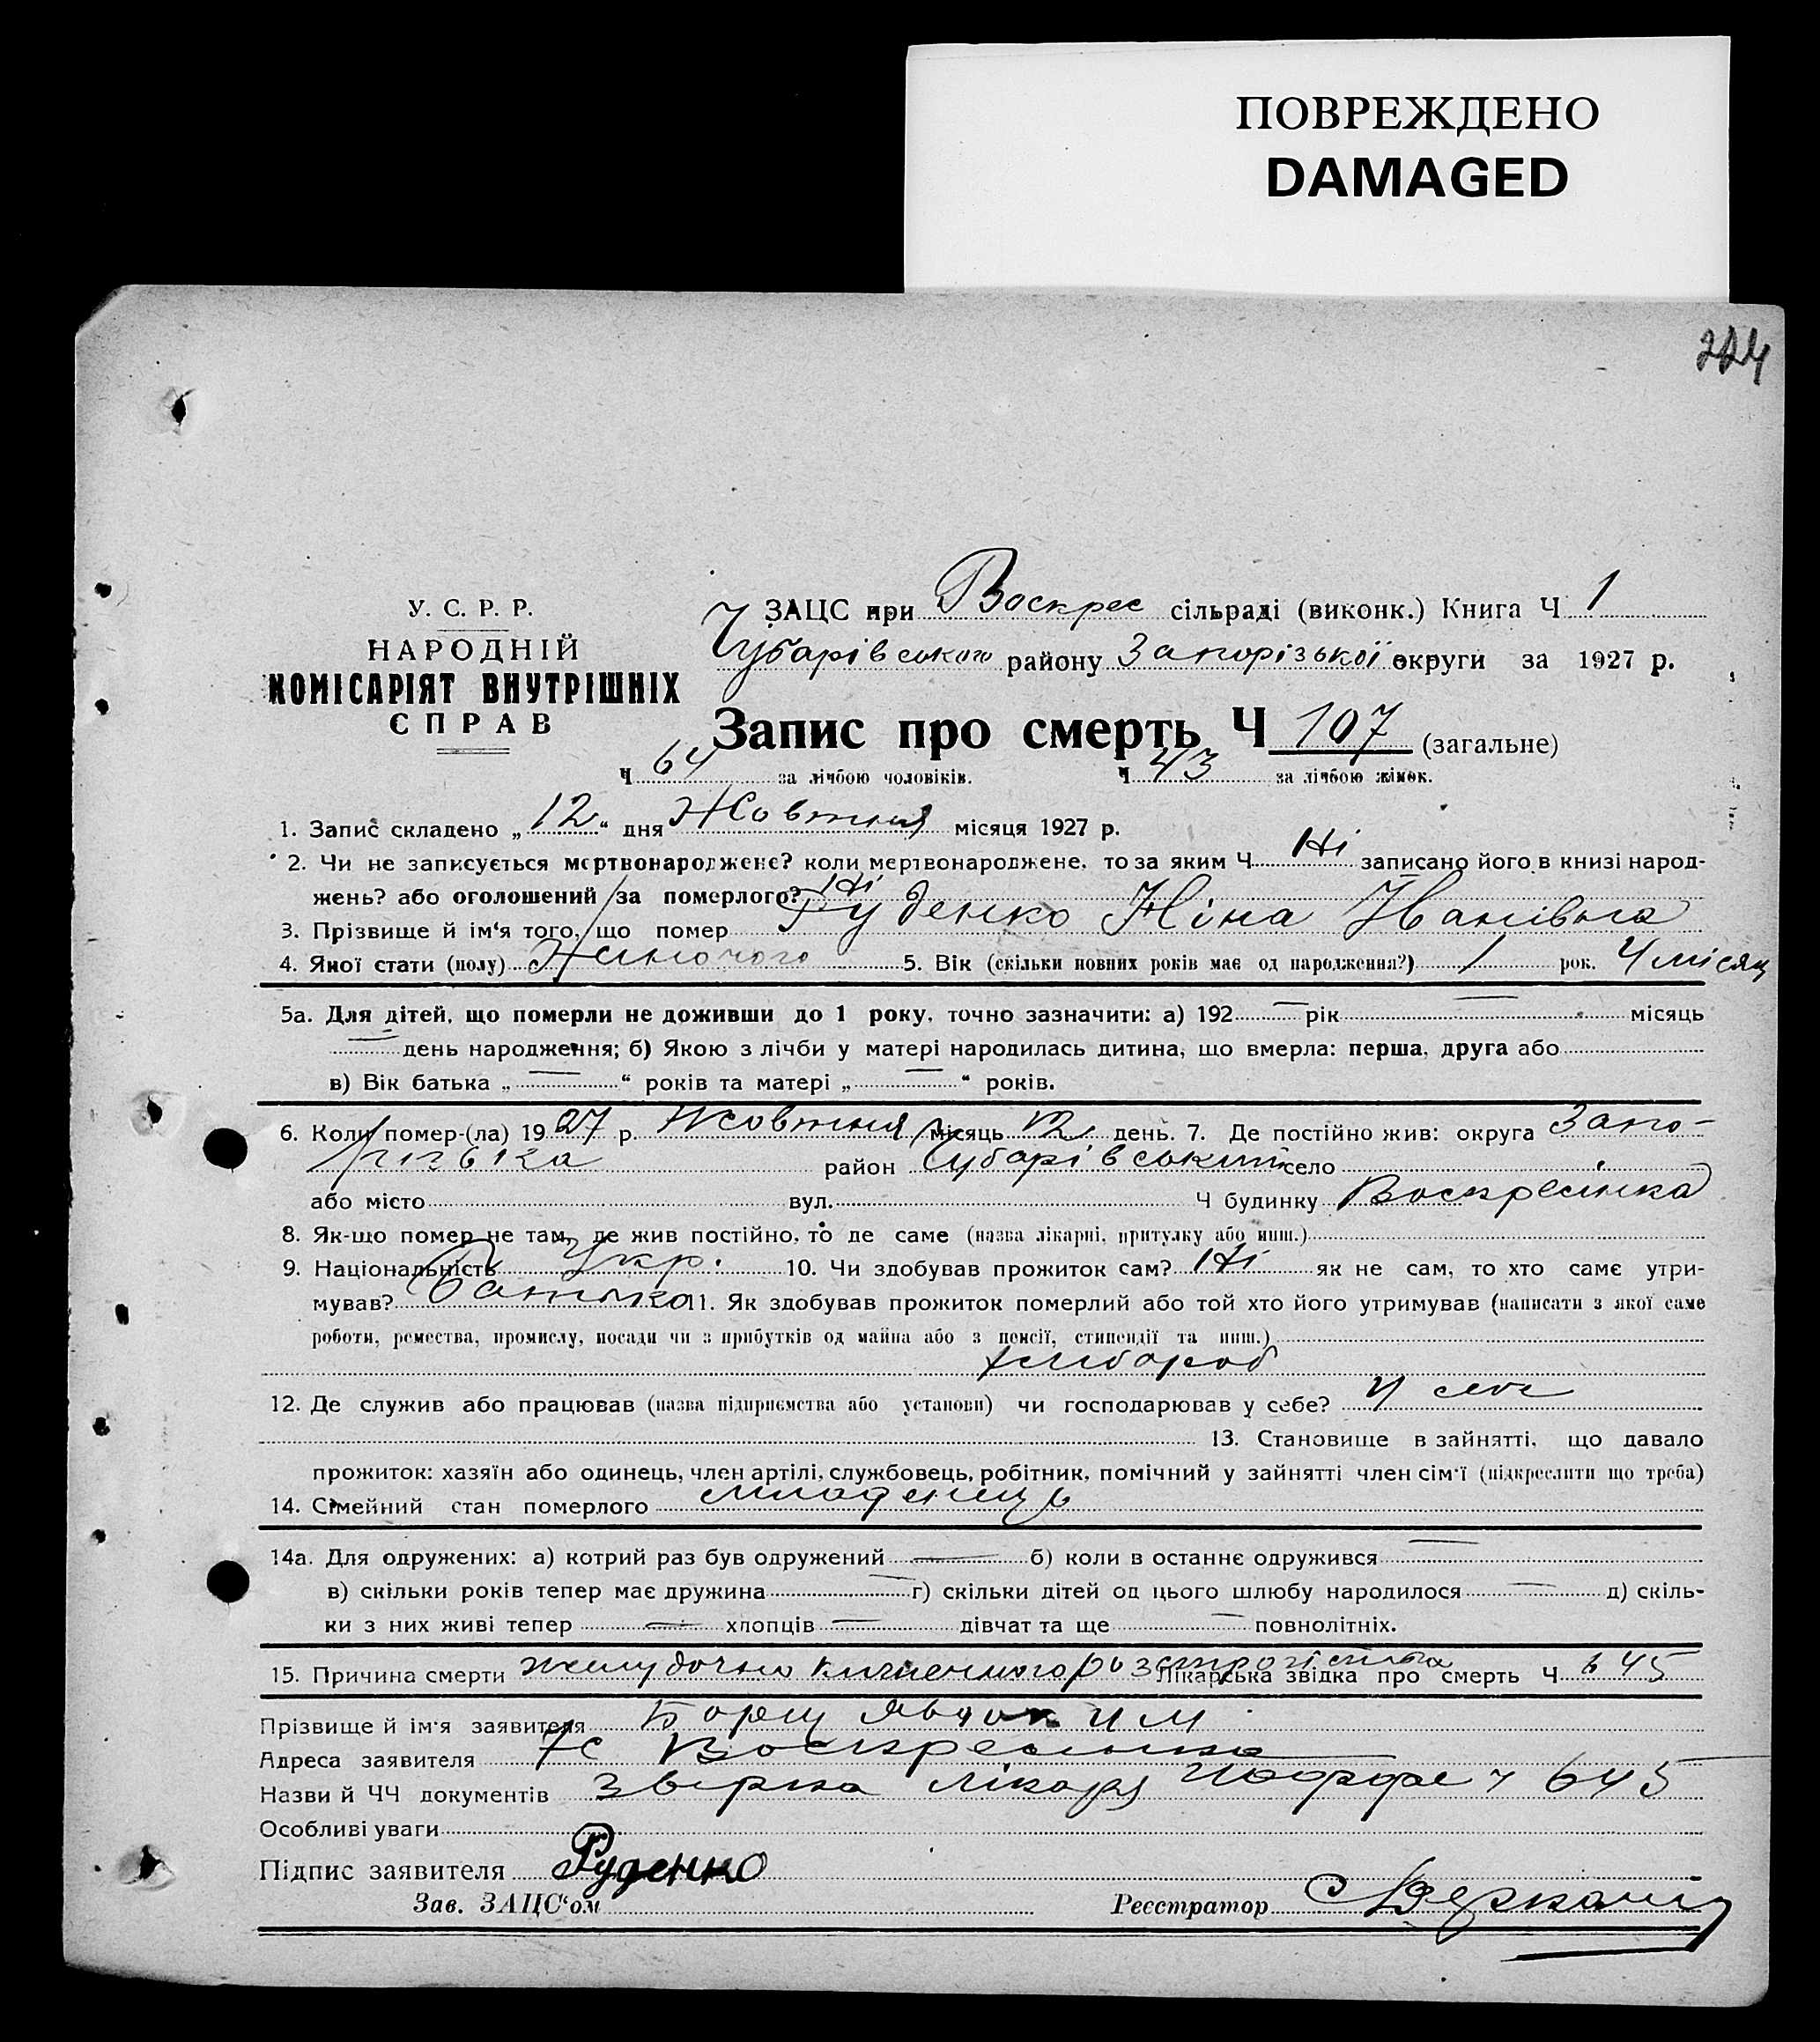 ПОВРЕЖДЕНО
DAMAGED
224
У. С. Р. Р.
НАРОДНІЙ
КОМІСАРІЯТ ВНУТРІШНІХ
СПРАВ
ЗАЦС при Воскрес сільраді (виконк.) Книга Ч 1
Чубарівського району Запорізької округи за 1927 р.
Запис про смерть Ч 107 (загальне)
Ч 64 за лічбою чоловіків. Ч 43 за лічбою жінок.
1. Запис складено „12“ дня Жовтня місяця 1927 р.
2. Чи не записується мертвонароджене? коли мертвонароджене, то за яким Ч Ні записано його в книзі народ-
жень? або оголошений за померлого? Ні
3. Прізвище й ім‘я того, що помер Руденко Ніна Іванівна
4. Якої стати (полу) Жіночого 5. Вік (скільки повних років має од народження?) 1 рок. 4 місяц
5а. Для дітей, що померли не доживши до 1 року, точно зазначити: а) 192 — рік — місяць
— день народження; б) Якою з лічби у матері народилась дитина, що вмерла: перша, друга або
в) Вік батька „ — “ років та матері „ — “ років.
6. Коли помер-(ла) 1927 р. Жовтня місяць 12 день. 7. Де постійно жив: округа Запо-
різька район Чубарівський село
або місто вул. Ч будинку Воскресінка
8. Як-що помер не там, де жив постійно, то де саме (назва лікарні, притулку або инш.)
9. Національність Укр. 10. Чи здобував прожиток сам? Ні як не сам, то хто саме утри-
мував? Батько 11. Як здобував прожиток померлий або той хто його утримував (написати з якої саме
роботи, ремества, промислу, посади чи з прибутків од майна або з пенсії, стипендії та инш.)
хлібороб
12. Де служив або працював (назва підприємства або установи) чи господарював у себе? У себе
13. Становище в зайнятті, що давало
прожиток: хазяїн або одинець, член артілі, службовець, робітник, помічний у зайнятті член сім‘ї (підкреслити що треба)
14. Сімейний стан померлого младенець
14а. Для одружених: а) котрий раз був одружений — б) коли в останнє одружився —
в) скільки років тепер має дружина — г) скільки дітей од цього шлюбу народилося — д) скіль-
ки з них живі тепер — хлопців — дівчат та ще — повнолітніх.
15. Причина смерти желудочно Лікарська звідка про смерть Ч 645
Прізвище й ім‘я заявителя Борщ
Адреса заявителя с Воскресінка
Назви й ЧЧ документів лікаря Ч 645
Особливі уваги
Підпис заявителя Руденко
Зав. ЗАЦС‘ом Реєстратор